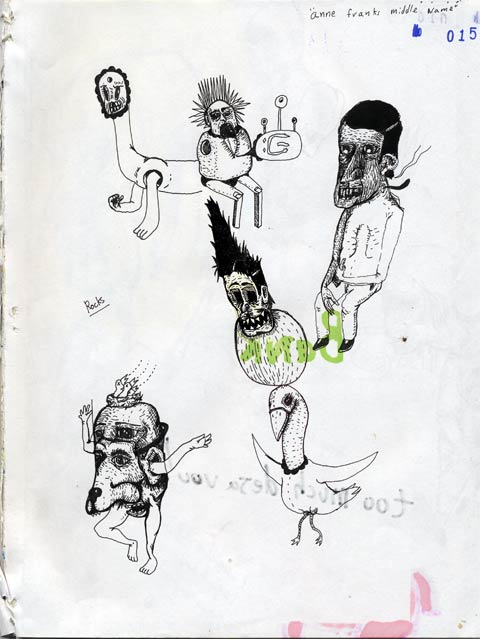 "anne franks middle name"
015
Rocks
too much deja vou